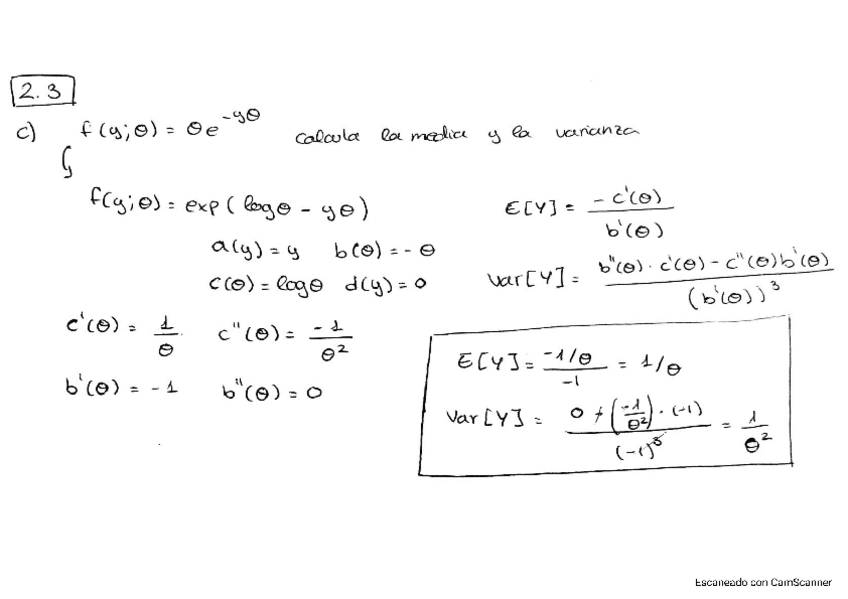 2.3
c) f(y;θ) = θe^{-yθ} calcula la media y la varianza
f(y;θ) = exp(logθ - yθ)
a(y) = y b(θ) = -θ
c(θ) = logθ d(y) = 0
E[Y] = -c'(θ) / b'(θ)
Var[Y] = b''(θ)·c'(θ) - c''(θ)b'(θ) / (b'(θ))^3
c'(θ) = 1/θ c''(θ) = -1/θ²
b'(θ) = -1 b''(θ) = 0
E[Y] = -1/θ / -1 = 1/θ
Var[Y] = 0 + (-1/θ²)·(-1) / (-1)^3 = 1/θ²
Escaneado con CamScanner